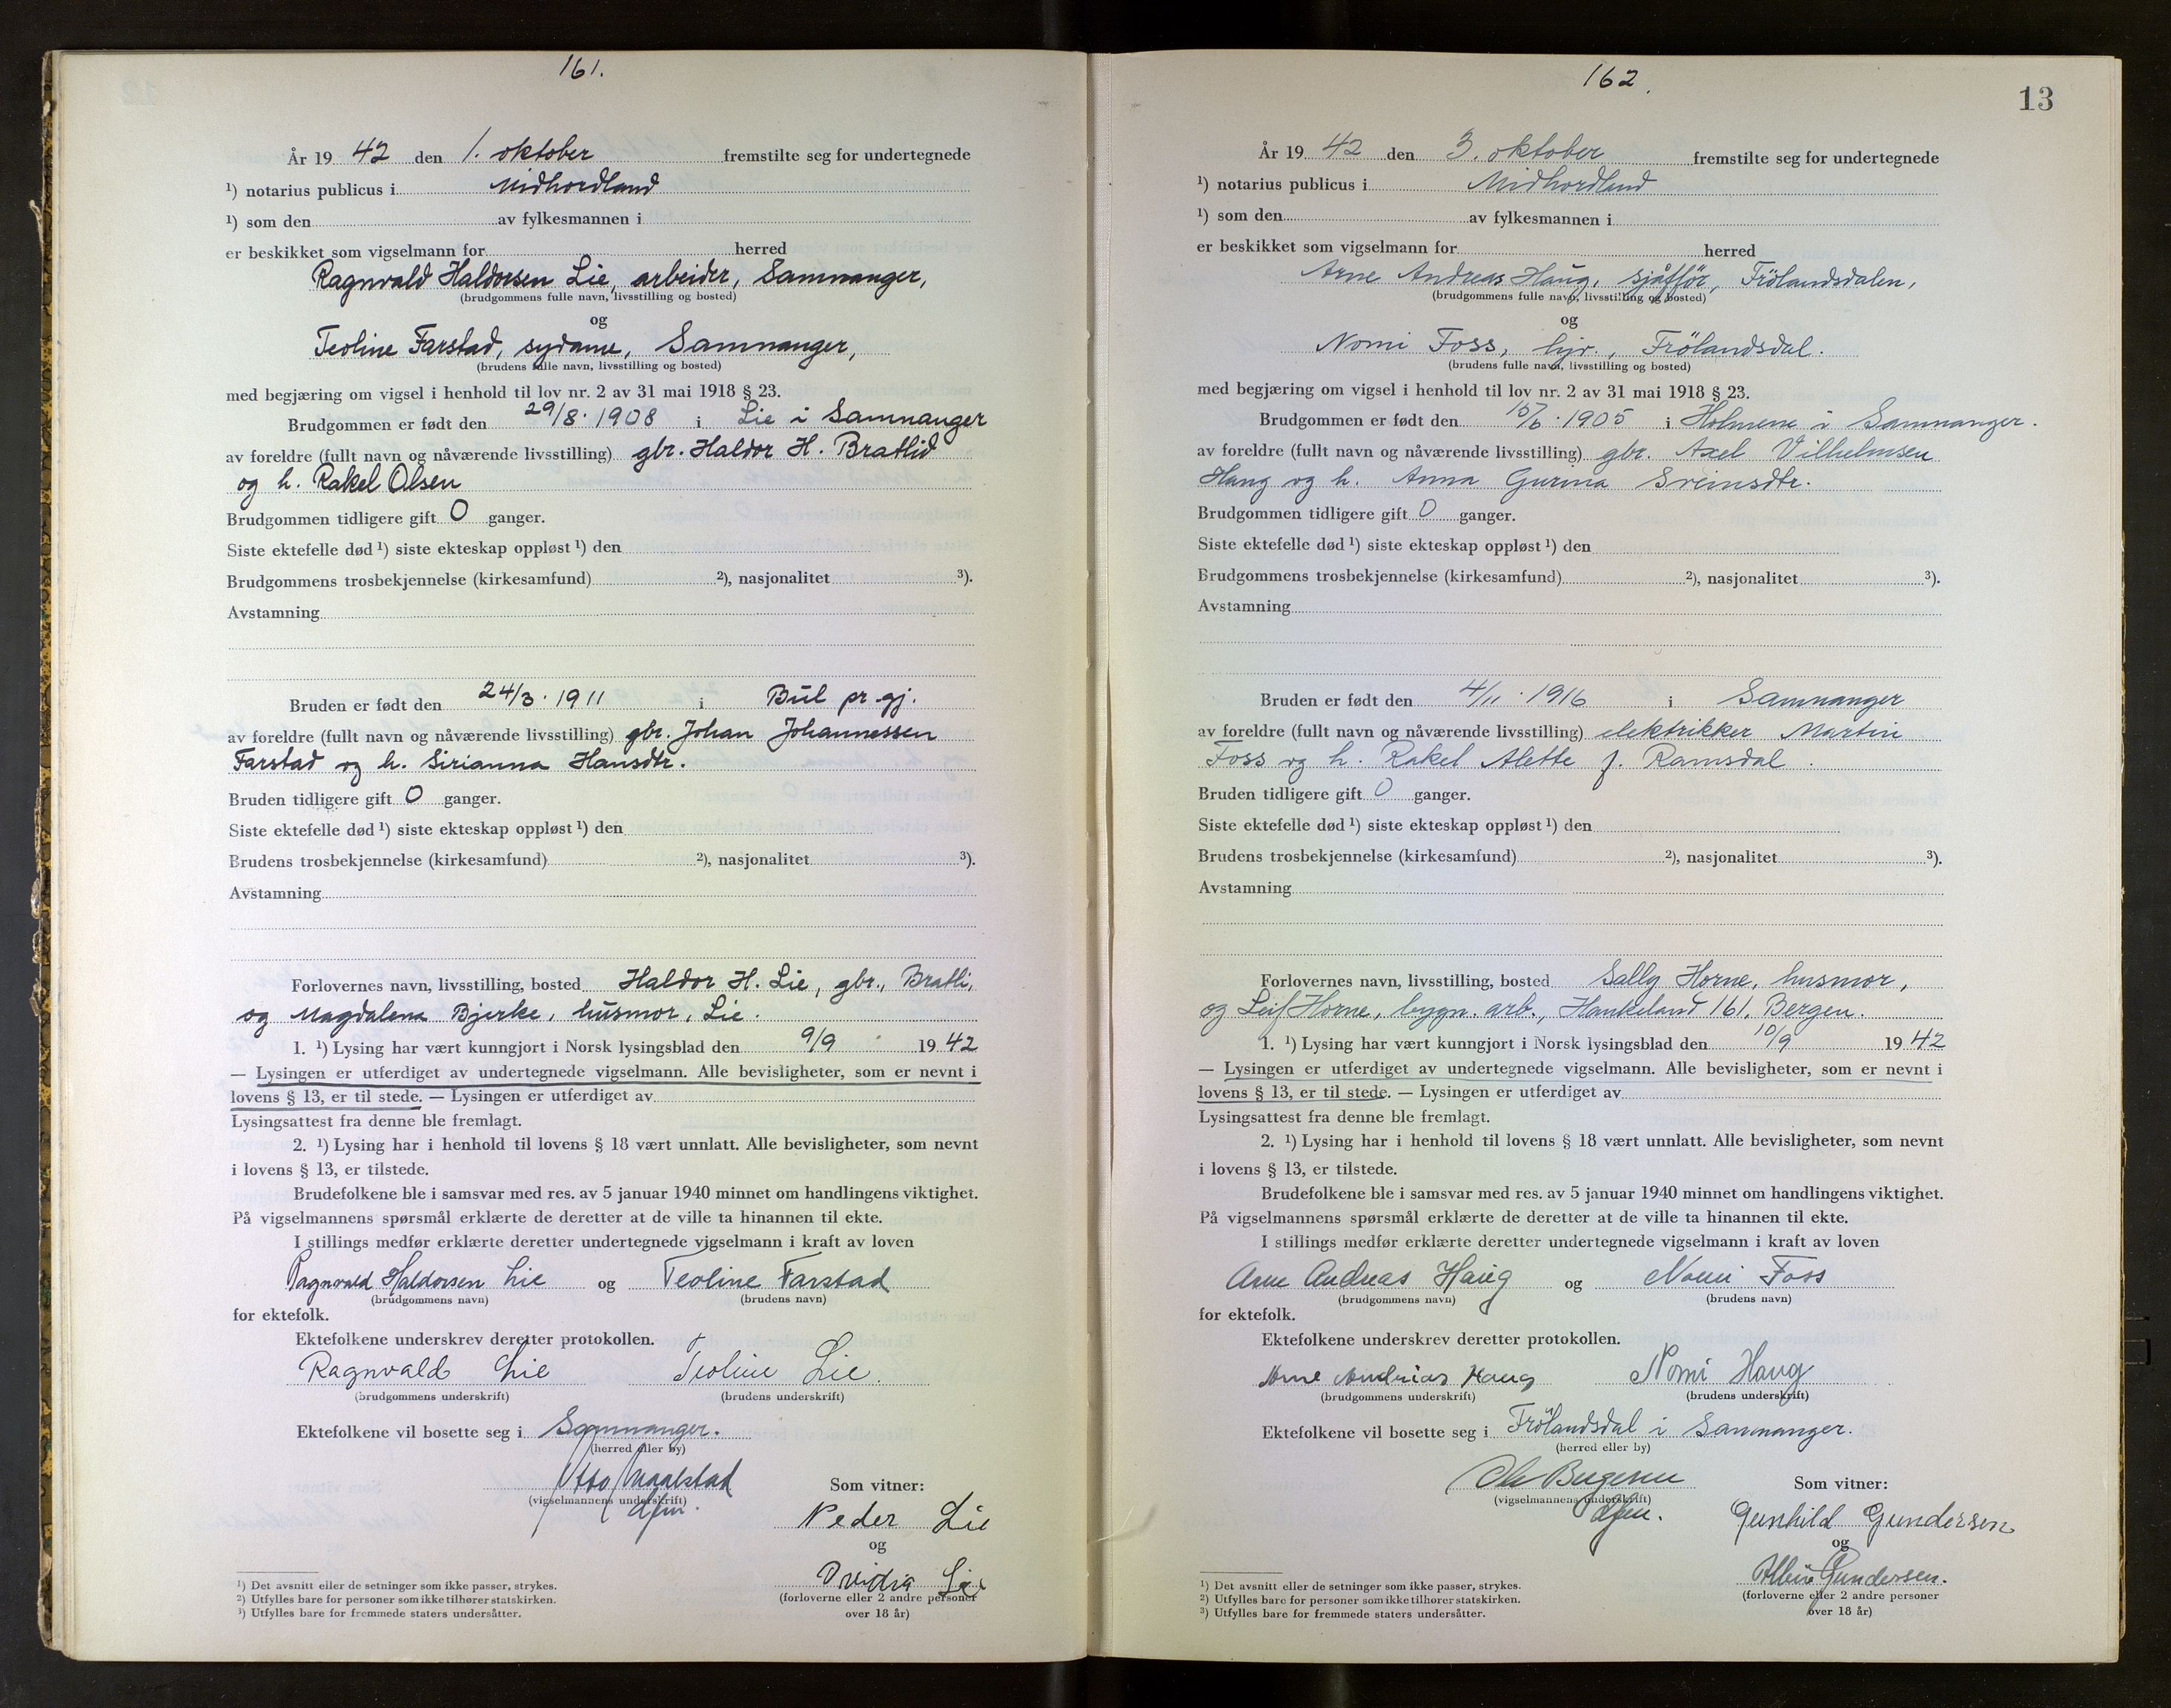 161.
År 19 42 den 1. oktober fremstilte seg for undertegnede
¹) notarius publicus i Midhordland
¹) som den av fylkesmannen i
er beskikket som vigselmann for herred
Ragnvald Haldorsen Lie, arbeider, Samnanger,
(brudgommens fulle navn, livsstilling og bosted)
og
Teoline Farstad, sydame, Samnanger,
(brudens fulle navn, livsstilling og bosted)
med begjæring om vigsel i henhold til lov nr. 2 av 31 mai 1918 § 23.
Brudgommen er født den 29/8. 1908 i Lie i Samnanger
av foreldre (fullt navn og nåværende livsstilling) gbr. Haldor H. Bratlid
og h. Rakel Olsen
Brudgommen tidligere gift 0 ganger.
Siste ektefelle død ¹) siste ekteskap oppløst ¹) den
Brudgommens trosbekjennelse (kirkesamfund) ²), nasjonalitet ³).
Avstamning
Bruden er født den 24/3. 1911 i Bud pr gj.
av foreldre (fullt navn og nåværende livsstilling) gbr. Johan Johannessen
Farstad og h. Sirianna Hansdtr.
Bruden tidligere gift 0 ganger.
Siste ektefelle død ¹) siste ekteskap oppløst ¹) den
Brudens trosbekjennelse (kirkesamfund) ²), nasjonalitet ³).
Avstamning
Forlovernes navn, livsstilling, bosted Haldor H. Lie, gbr., Bratli,
og Magdalena Bjerke, husmor, Lie.
1. ¹) Lysing har vært kunngjort i Norsk lysingsblad den 9/9 19 42
— Lysingen er utferdiget av undertegnede vigselmann. Alle bevisligheter, som er nevnt i
lovens § 13, er til stede. — Lysingen er utferdiget av
Lysingsattest fra denne ble fremlagt.
2. ¹) Lysing har i henhold til lovens § 18 vært unnlatt. Alle bevisligheter, som nevnt
i lovens § 13, er tilstede.
Brudefolkene ble i samsvar med res. av 5 januar 1940 minnet om handlingens viktighet.
På vigselmannens spørsmål erklærte de deretter at de ville ta hinannen til ekte.
I stillings medfør erklærte deretter undertegnede vigselmann i kraft av loven
Ragnvald Haldorsen Lie og Teoline Farstad
(brudgommens navn) (brudens navn)
for ektefolk.
Ektefolkene underskrev deretter protokollen.
Ragnvald Lie Teoline Lie.
(brudgommens underskrift) (brudens underskrift)
Ektefolkene vil bosette seg i Samnanger.
(herred eller by)
Otto
(vigselmannens underskrift)
Som vitner:
Peder Lie
og
Lie
(forloverne eller 2 andre personer
over 18 år)
¹) Det avsnitt eller de setninger som ikke passer, strykes.
²) Utfylles bare for personer som ikke tilhører statskirken.
³) Utfylles bare for fremmede staters undersåtter.
162.
13
År 19 42 den 3. oktober fremstilte seg for undertegnede
¹) notarius publicus i Midhordland
¹) som den av fylkesmannen i
er beskikket som vigselmann for herred
Arne Andreas Haug, sjåffør, Frölandsdalen,
(brudgommens fulle navn, livsstilling og bosted)
og
Nomi Foss, hjv., Frölandsdal.
(brudens fulle navn, livsstilling og bosted)
med begjæring om vigsel i henhold til lov nr. 2 av 31 mai 1918 § 23.
Brudgommen er født den 15/6. 1905 i Holmene i Samnanger.
av foreldre (fullt navn og nåværende livsstilling) gbr. Axel Vilhelmsen
Haug og h. Anna Gurina Sveinsdtr.
Brudgommen tidligere gift 0 ganger.
Siste ektefelle død ¹) siste ekteskap oppløst ¹) den
Brudgommens trosbekjennelse (kirkesamfund) ²), nasjonalitet ³).
Avstamning
Bruden er født den 4/11. 1916 i Samnanger
av foreldre (fullt navn og nåværende livsstilling) elektrikker Martin
Foss og h. Rakel Alette f. Ramsdal.
Bruden tidligere gift 0 ganger.
Siste ektefelle død ¹) siste ekteskap oppløst ¹) den
Brudens trosbekjennelse (kirkesamfund) ²), nasjonalitet ³).
Avstamning
Forlovernes navn, livsstilling, bosted Sally Horne, husmor,
og Leif Horne, bygn. arb., Haukeland 161, Bergen.
1. ¹) Lysing har vært kunngjort i Norsk lysingsblad den 10/9 19 42
— Lysingen er utferdiget av undertegnede vigselmann. Alle bevisligheter, som er nevnt i
lovens § 13, er til stede. — Lysingen er utferdiget av
Lysingsattest fra denne ble fremlagt.
2. ¹) Lysing har i henhold til lovens § 18 vært unnlatt. Alle bevisligheter, som nevnt
i lovens § 13, er tilstede.
Brudefolkene ble i samsvar med res. av 5 januar 1940 minnet om handlingens viktighet.
På vigselmannens spørsmål erklærte de deretter at de ville ta hinannen til ekte.
I stillings medfør erklærte deretter undertegnede vigselmann i kraft av loven
Arne Andreas Haug og Nomi Foss
(brudgommens navn) (brudens navn)
for ektefolk.
Ektefolkene underskrev deretter protokollen.
Arne Andreas Haug Nomi Haug
(brudgommens underskrift) (brudens underskrift)
Ektefolkene vil bosette seg i Frölandsdal i Samnanger.
(herred eller by)
Ole Bergesen
(vigselmannens underskrift)
Som vitner:
Gunhild Gundersen
og
Gundersen.
(forloverne eller 2 andre personer
over 18 år)
¹) Det avsnitt eller de setninger som ikke passer, strykes.
²) Utfylles bare for personer som ikke tilhører statskirken.
³) Utfylles bare for fremmede staters undersåtter.